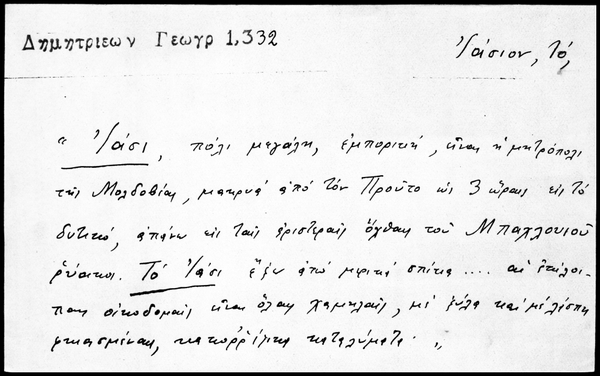 Δημητριεων Γεωγρ 1,332
Ἰάσιον, τό,
" Ἰάσι, πόλι μεγάλη, ἐμπορική, εἶναι ἡ μητρόπολι
τῆς Μολδοβίας, μακρυά ἀπό τόν Προῦτο ὡς 3 ὥραις εἰς τό
δυτικό, ἀπάνω εἰς ταῖς ἀριστεραῖς ὄχθαις τοῦ Μπαχλουιοῦ
ῥύακος. Τό Ἰάσι ἔξω ἀπό μερικά σπίτια .... αἱ ἐπίλοι-
παις οἰκοδομαῖς εἶναι ὅλαις χαμηλαῖς, μέ ξύλα καί μέ λάσπη
φκιασμέναις, καταλύματα. "